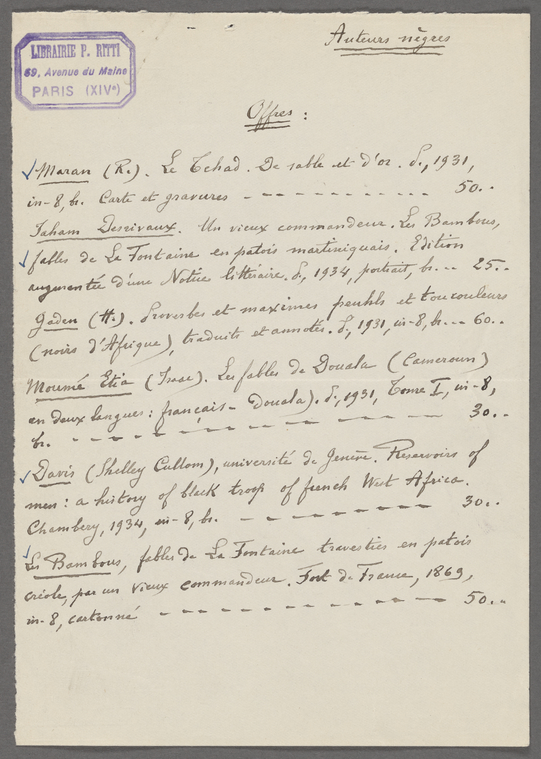 Auteurs nègres
LIBRAIRIE P. RITTI
59, Avenue du Maine
PARIS (XIVe)
Offres :
Maran (R.). Le Tchad. De sable et d'or. P., 1931,
in-8, br. Carte et gravures - - - - - - - - - 50..
Jaham Desrivaux. Un vieux commandeur. Les Bambous,
fables de La Fontaine en patois martiniquais. Edition
augmentée d'une Notice littéraire. P., 1934, portrait, br. .. 25..
Gaden (H.). Proverbes et maximes peuhls et toucouleurs
(noirs d'Afrique), traduits et annotés. P., 1931, in-8, br. .. 60..
Moumé Etia (Isaac). Les fables de Douala (Cameroun)
en deux langues : français - Douala). P., 1931, Tome I, in-8,
br. - - - - - - - - - - - - - 30..
Davis (Shelley Cullom), université de Genève. Reservoirs of
men : a history of black troop of french West Africa.
Chambery, 1934, in-8, br. - - - - - - - - - 30..
Les Bambous, fables de La Fontaine travesties en patois
créole, par un vieux commandeur. Fort de France, 1869,
in-8, cartonné - - - - - - - - - - - 50..